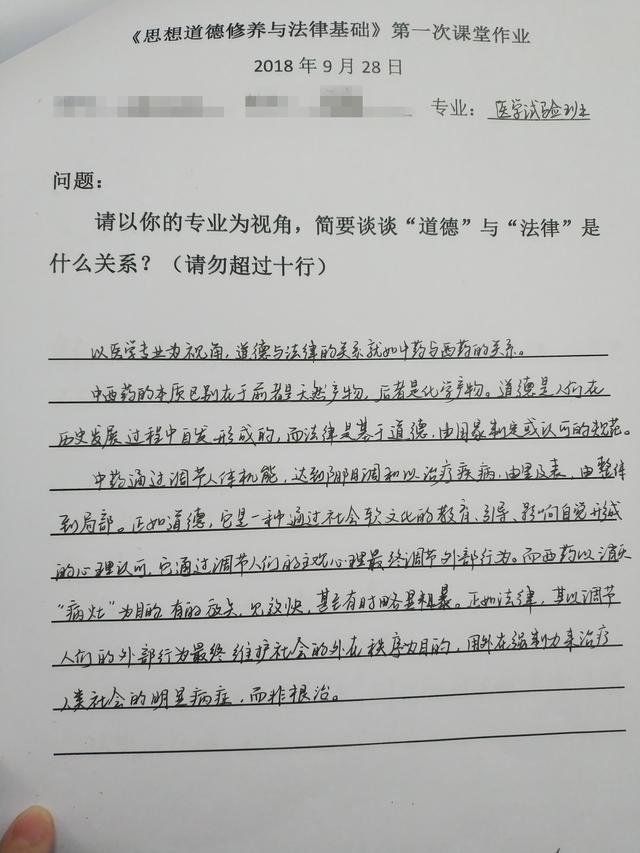 《思想道德修养与法律基础》第一次课堂作业
2018 年 9 月 28 日
专业：医学试验班
问题：
请以你的专业为视角，简要谈谈“道德”与“法律”是
什么关系？（请勿超过十行）
以医学专业为视角，道德与法律的关系就如中药与西药的关系。
中西药的本质区别在于前者是天然产物，后者是化学产物。道德是人们在
历史发展过程中自发形成的，而法律是基于道德，由国家制定或认可的规范。
中药通过调节人体机能，达到阴阳调和以治疗疾病，由里及表，由整体
到局部。正如道德，它是一种通过社会软文化的教育、引导、影响自觉形成
的心理认可，它通过调节人们的主观心理最终调节外部行为。而西药以消灭
“病灶”为目的，有的放矢，见效快，甚至有时略显粗暴。正如法律，其以调节
人们的外部行为最终维护社会的外在秩序为目的，用外在强制力来治疗
人类社会的明显病症，而非根治。